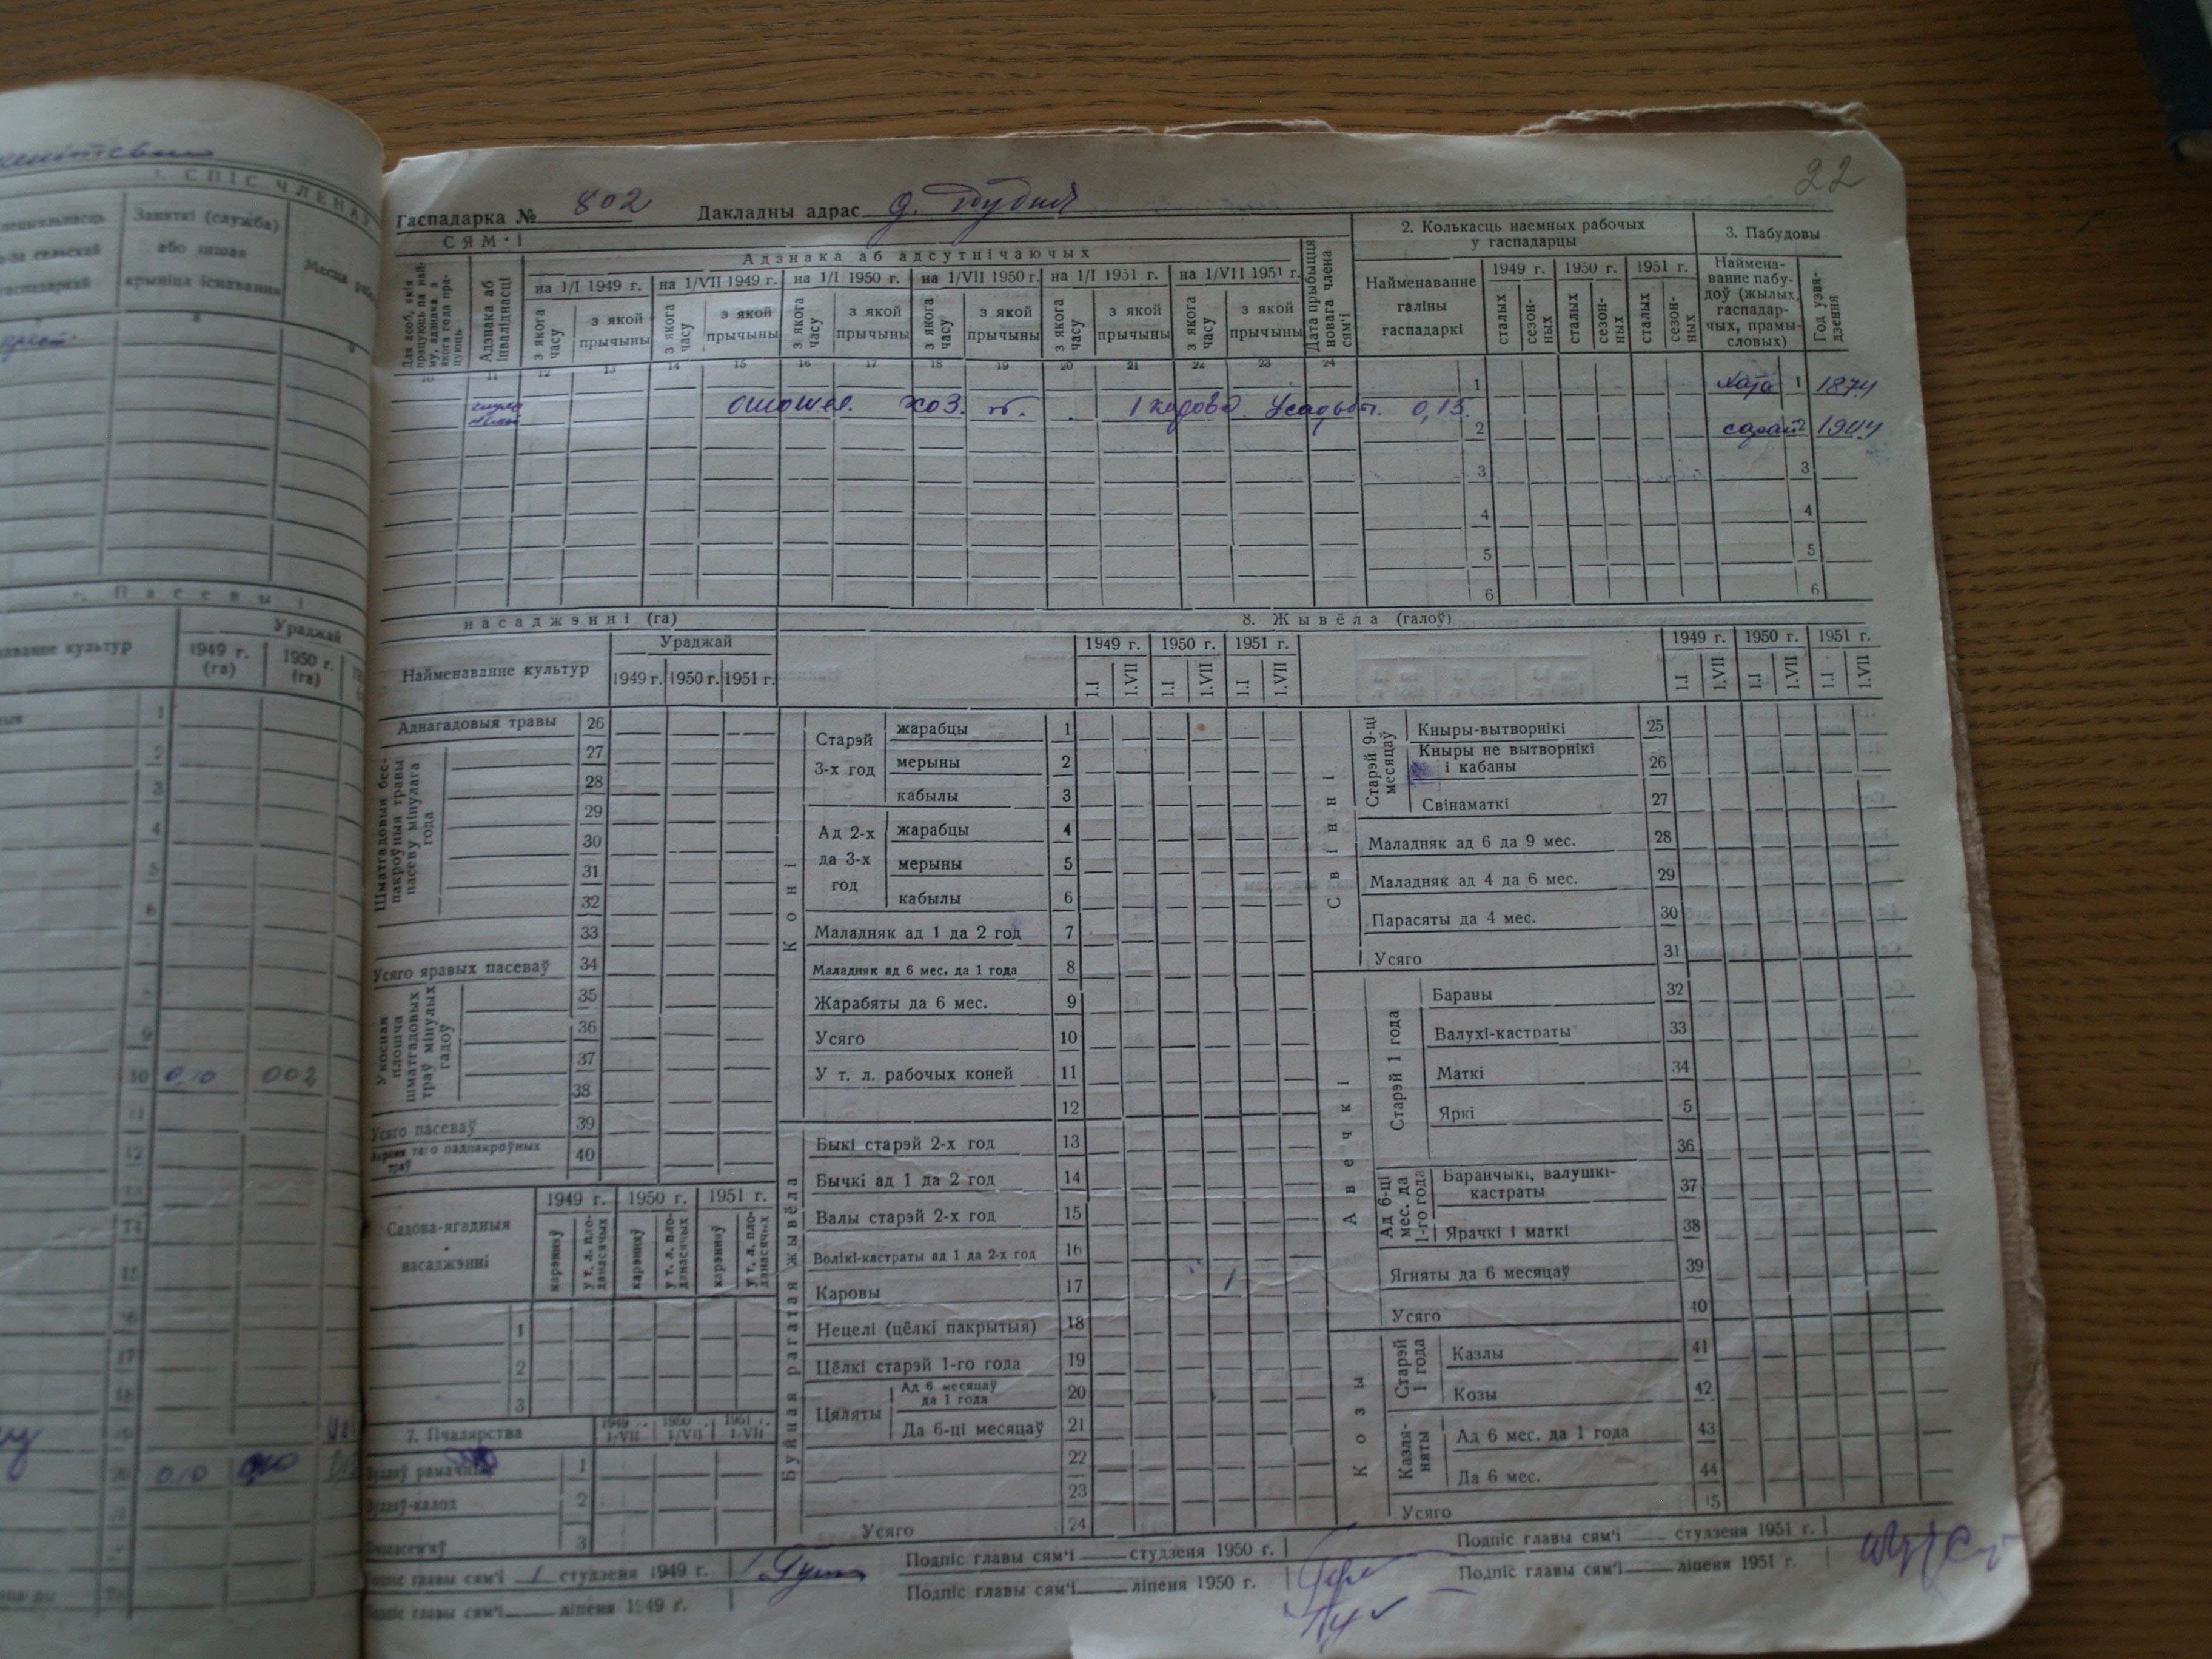 1. СПІС ЧЛЕНАЎ
Заняткі (служба)
або іншая
крыніца існавання
Ураджай
1949 г. (га)
1950 г. (га)
10 0,10 002
20 0,10
22
Гаспадарка № 802 Дакладны адрас д.
СЯМ'І
Для асоб, якія працуюць па найму, адзнака з якога года працуюць
Адзнака аб інваліднасці
Адзнака аб адсутнічаючых
на 1/I 1949 г. на 1/VII 1949 г. на 1/I 1950 г. на 1/VII 1950 г. на 1/I 1951 г. на 1/VII 1951 г.
з якога часу з якой прычыны з якога часу з якой прычыны з якога часу з якой прычыны з якога часу з якой прычыны з якога часу з якой прычыны з якога часу з якой прычыны
Дата прыбыцця новага члена сям'і
10 11 12 13 14 15 16 17 18 19 20 21 22 23 24
хоз. 1 корова. Усадьбы. 0,15.
2. Колькасць наемных рабочых у гаспадарцы
Найменаванне галіны гаспадаркі
1949 г. 1950 г. 1951 г.
сталых сезонных сталых сезонных сталых сезонных
1
2
3
4
5
6
3. Пабудовы
Найменаванне пабудоў (жылых, гаспадарчых, прамысловых)
Год узвядзення
хата 1 1874
сарай 2 1904
3
4
5
6
насаджэнні (га)
Найменаванне культур
Ураджай
1949 г. 1950 г. 1951 г.
Аднагадовыя травы 26
Шматгадовыя беспакроўныя травы пасеву мінулага года
27
28
29
30
31
32
33
Усяго яравых пасеваў 34
Укосная плошча шматгадовых траў мінулых гадоў
35
36
37
38
Усяго пасеваў 39
Акрамя таго падпакроўных траў 40
Садова-ягадныя насаджэнні
1949 г. 1950 г. 1951 г.
карэнняў у т. л. пладанасячых карэнняў у т. л. пладанасячых карэнняў у т. л. пладанасячых
1
2
3
7. Пчалярства 1949 1/VII 1950 1/VII 1951 1/VII
1
2
3
8. Жывёла (галоў)
1949 г. 1950 г. 1951 г.
1.I 1.VII 1.I 1.VII 1.I 1.VII
Коні
Старэй 3-х год
жарабцы 1
мерыны 2
кабылы 3
Ад 2-х да 3-х год
жарабцы 4
мерыны 5
кабылы 6
Маладняк ад 1 да 2 год 7
Маладняк ад 6 мес. да 1 года 8
Жарабяты да 6 мес. 9
Усяго 10
У т. л. рабочых коней 11
12
Буйная рагатая жывёла
Быкі старэй 2-х год 13
Бычкі ад 1 да 2 год 14
Валы старэй 2-х год 15
Волікі-кастраты ад 1 да 2-х год 16
Каровы 17 1
Нецелі (цёлкі пакрытыя) 18
Цёлкі старэй 1-го года 19
Цяляты
Ад 6 месяцаў да 1 года 20
Да 6-ці месяцаў 21
22
23
Усяго 24
1949 г. 1950 г. 1951 г.
1.I 1.VII 1.I 1.VII 1.I 1.VII
Свінні
Старэй 9-ці месяцаў
Кныры-вытворнікі 25
Кныры не вытворнікі і кабаны 26
Свінаматкі 27
Маладняк ад 6 да 9 мес. 28
Маладняк ад 4 да 6 мес. 29
Парасяты да 4 мес. 30
Усяго 31
Авечкі
Старэй 1 года
Бараны 32
Валухі-кастраты 33
Маткі 34
Яркі 5
36
Ад 6-ці мес. да 1-го года
Баранчыкі, валушкі-кастраты 37
Ярачкі і маткі 38
Ягняты да 6 месяцаў 39
Усяго 40
Козы
Старэй 1 года
Казлы 41
Козы 42
Казляняты
Ад 6 мес. да 1 года 43
Да 6 мес. 44
Усяго 45
Подпіс главы сям'і 1 студзеня 1949 г.
Подпіс главы сям'і ліпеня 1949 г.
Подпіс главы сям'і студзеня 1950 г.
Подпіс главы сям'і ліпеня 1950 г.
Подпіс главы сям'і студзеня 1951 г.
Подпіс главы сям'і ліпеня 1951 г.